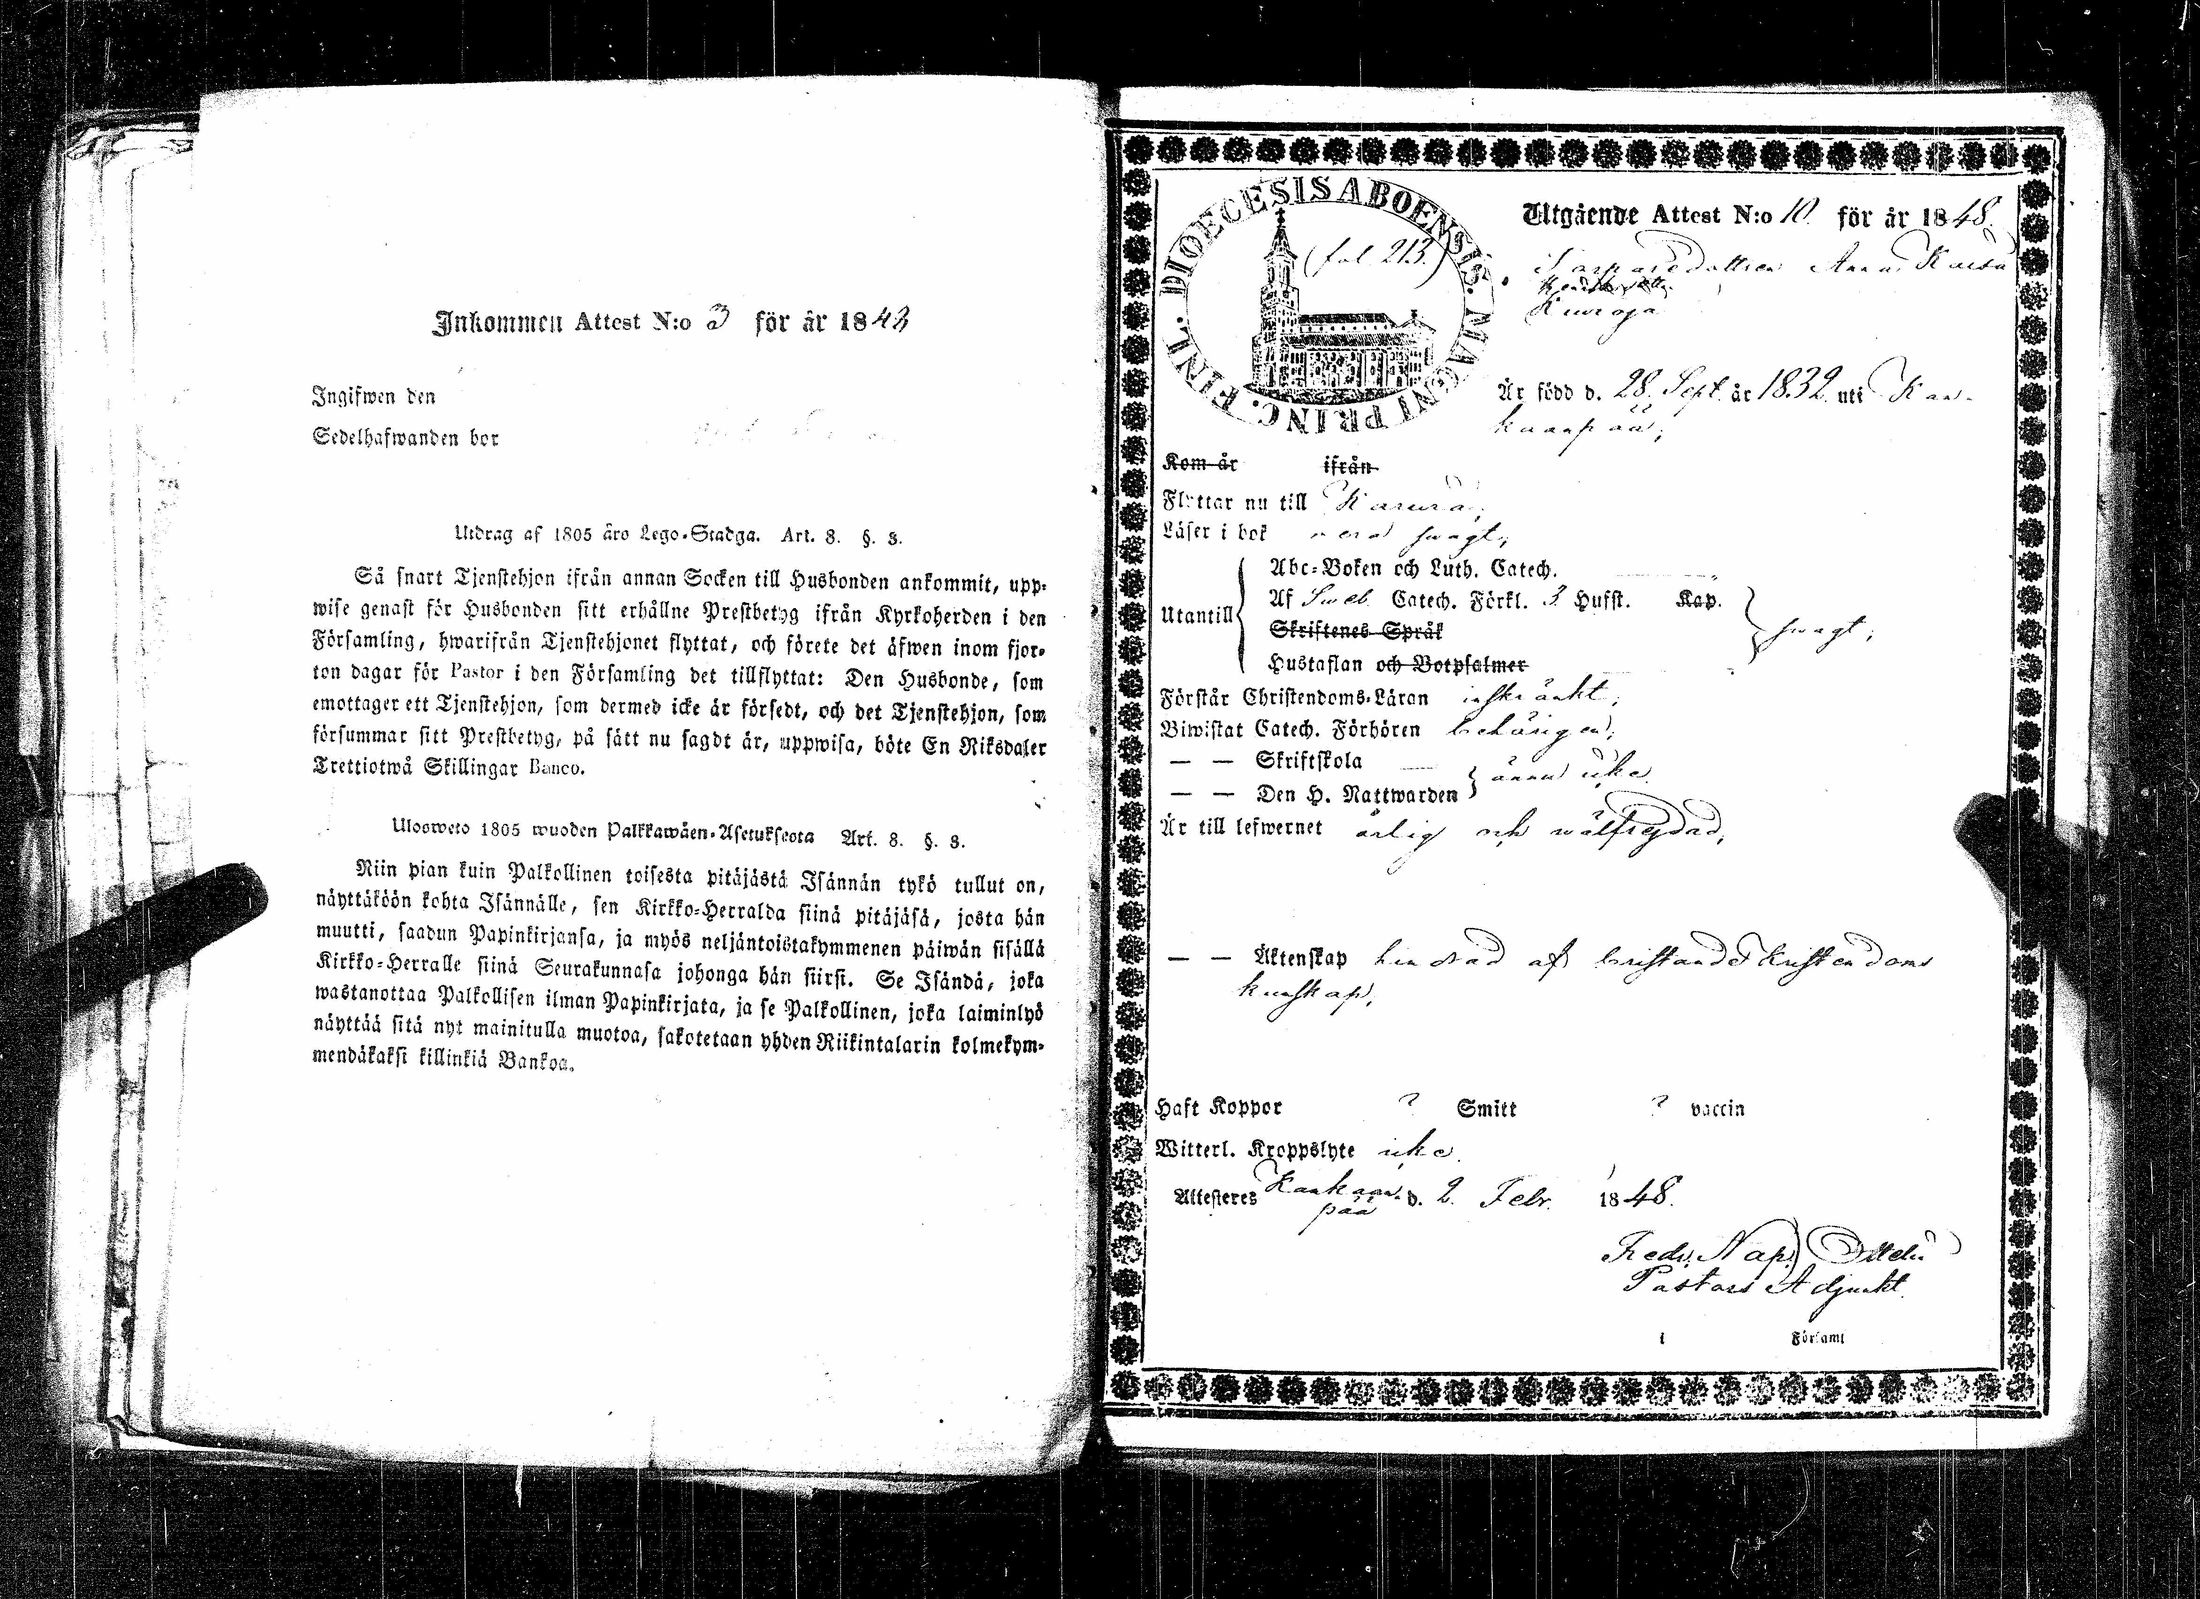 Inkommen Attest N:o 3 för år 1843
Ingifwen den
Sedelhafwanden bor
Utdrag af 1805 års Lego-Stadga. Art. 8. §. 3.
Så snart Tjenstehjon ifrån annan Socken till Husbonden ankommit, upp-
wise genast för Husbonden sitt erhållne Prestbetyg ifrån Kyrkoherden i den
Församling, hwarifrån Tjenstehjonet flyttat, och förete det äfwen inom fjor-
ton dagar för Pastor i den Församling det tillflyttat: Den Husbonde, som
emottager ett Tjenstehjon, som dermed icke är försedt, och det Tjenstehjon, som
försummar sitt Prestbetyg, på sätt nu sagdt är, uppwisa, böte En Riksdaler
Trettiotwå Skillingar Banco.
Ulosweto 1805 wuoden Palkkawäen-Asetuksesta Art. 8. §. 3.
Niin pian kuin Palkollinen toisesta pitäjästä Isännän tykö tullut on,
näyttäköön kohta Isännälle, sen Kirkko-Herralda siinä pitäjäsä, josta hän
muutti, saadun Papinkirjansa, ja myös neljäntoistakymmenen päiwän sisällä
Kirkko-Herralle siinä Seurakunnasa johonga hän siirsi. Se Isändä, joka
wastanottaa Palkollisen ilman Papinkirjata, ja se Palkollinen, joka laiminlyö
näyttää sitä nyt mainitulla muotoa, sakotetaan yhden Riikintalarin kolmekym-
mendäkaksi killinkiä Bankoa.
DIOECESIS ABOENSIS. MAGNI PRINC. FINL.
(fol 213.)
Utgående Attest N:o 10. för år 1848.
Anna Kaisa
Är född d. 28. Sept. år 1832. uti Kan-
kaanpää;
Kom år ifrån
Flyttar nu till
Läser i bok swagt;
Abc-Boken och Luth. Catech.
Utantill
Af Sweb. Catech. Förkl. 3. Hufst. Kap.
Skriftenes Språk
swagt;
Hustaflan och Botpsalmer
Förstår Christendoms-Läran inskränkt;
Biwistat Catech. Förhören behörigen;
— — Skriftskola
ännu icke
— — Den H. Nattwarden
Är till lefwernet ärlig och wälfrejdad,
— — Äktenskap hindrad af bristande Kristendoms
kunskap,
Haft Koppor ? Smitt ? vaccin
Witterl. Kroppslyte icke.
Attesteres Kankaan-
pää d. 2. Febr. 1848.
Fredr. Nap.
Pastors Adjunkt.
i Församl